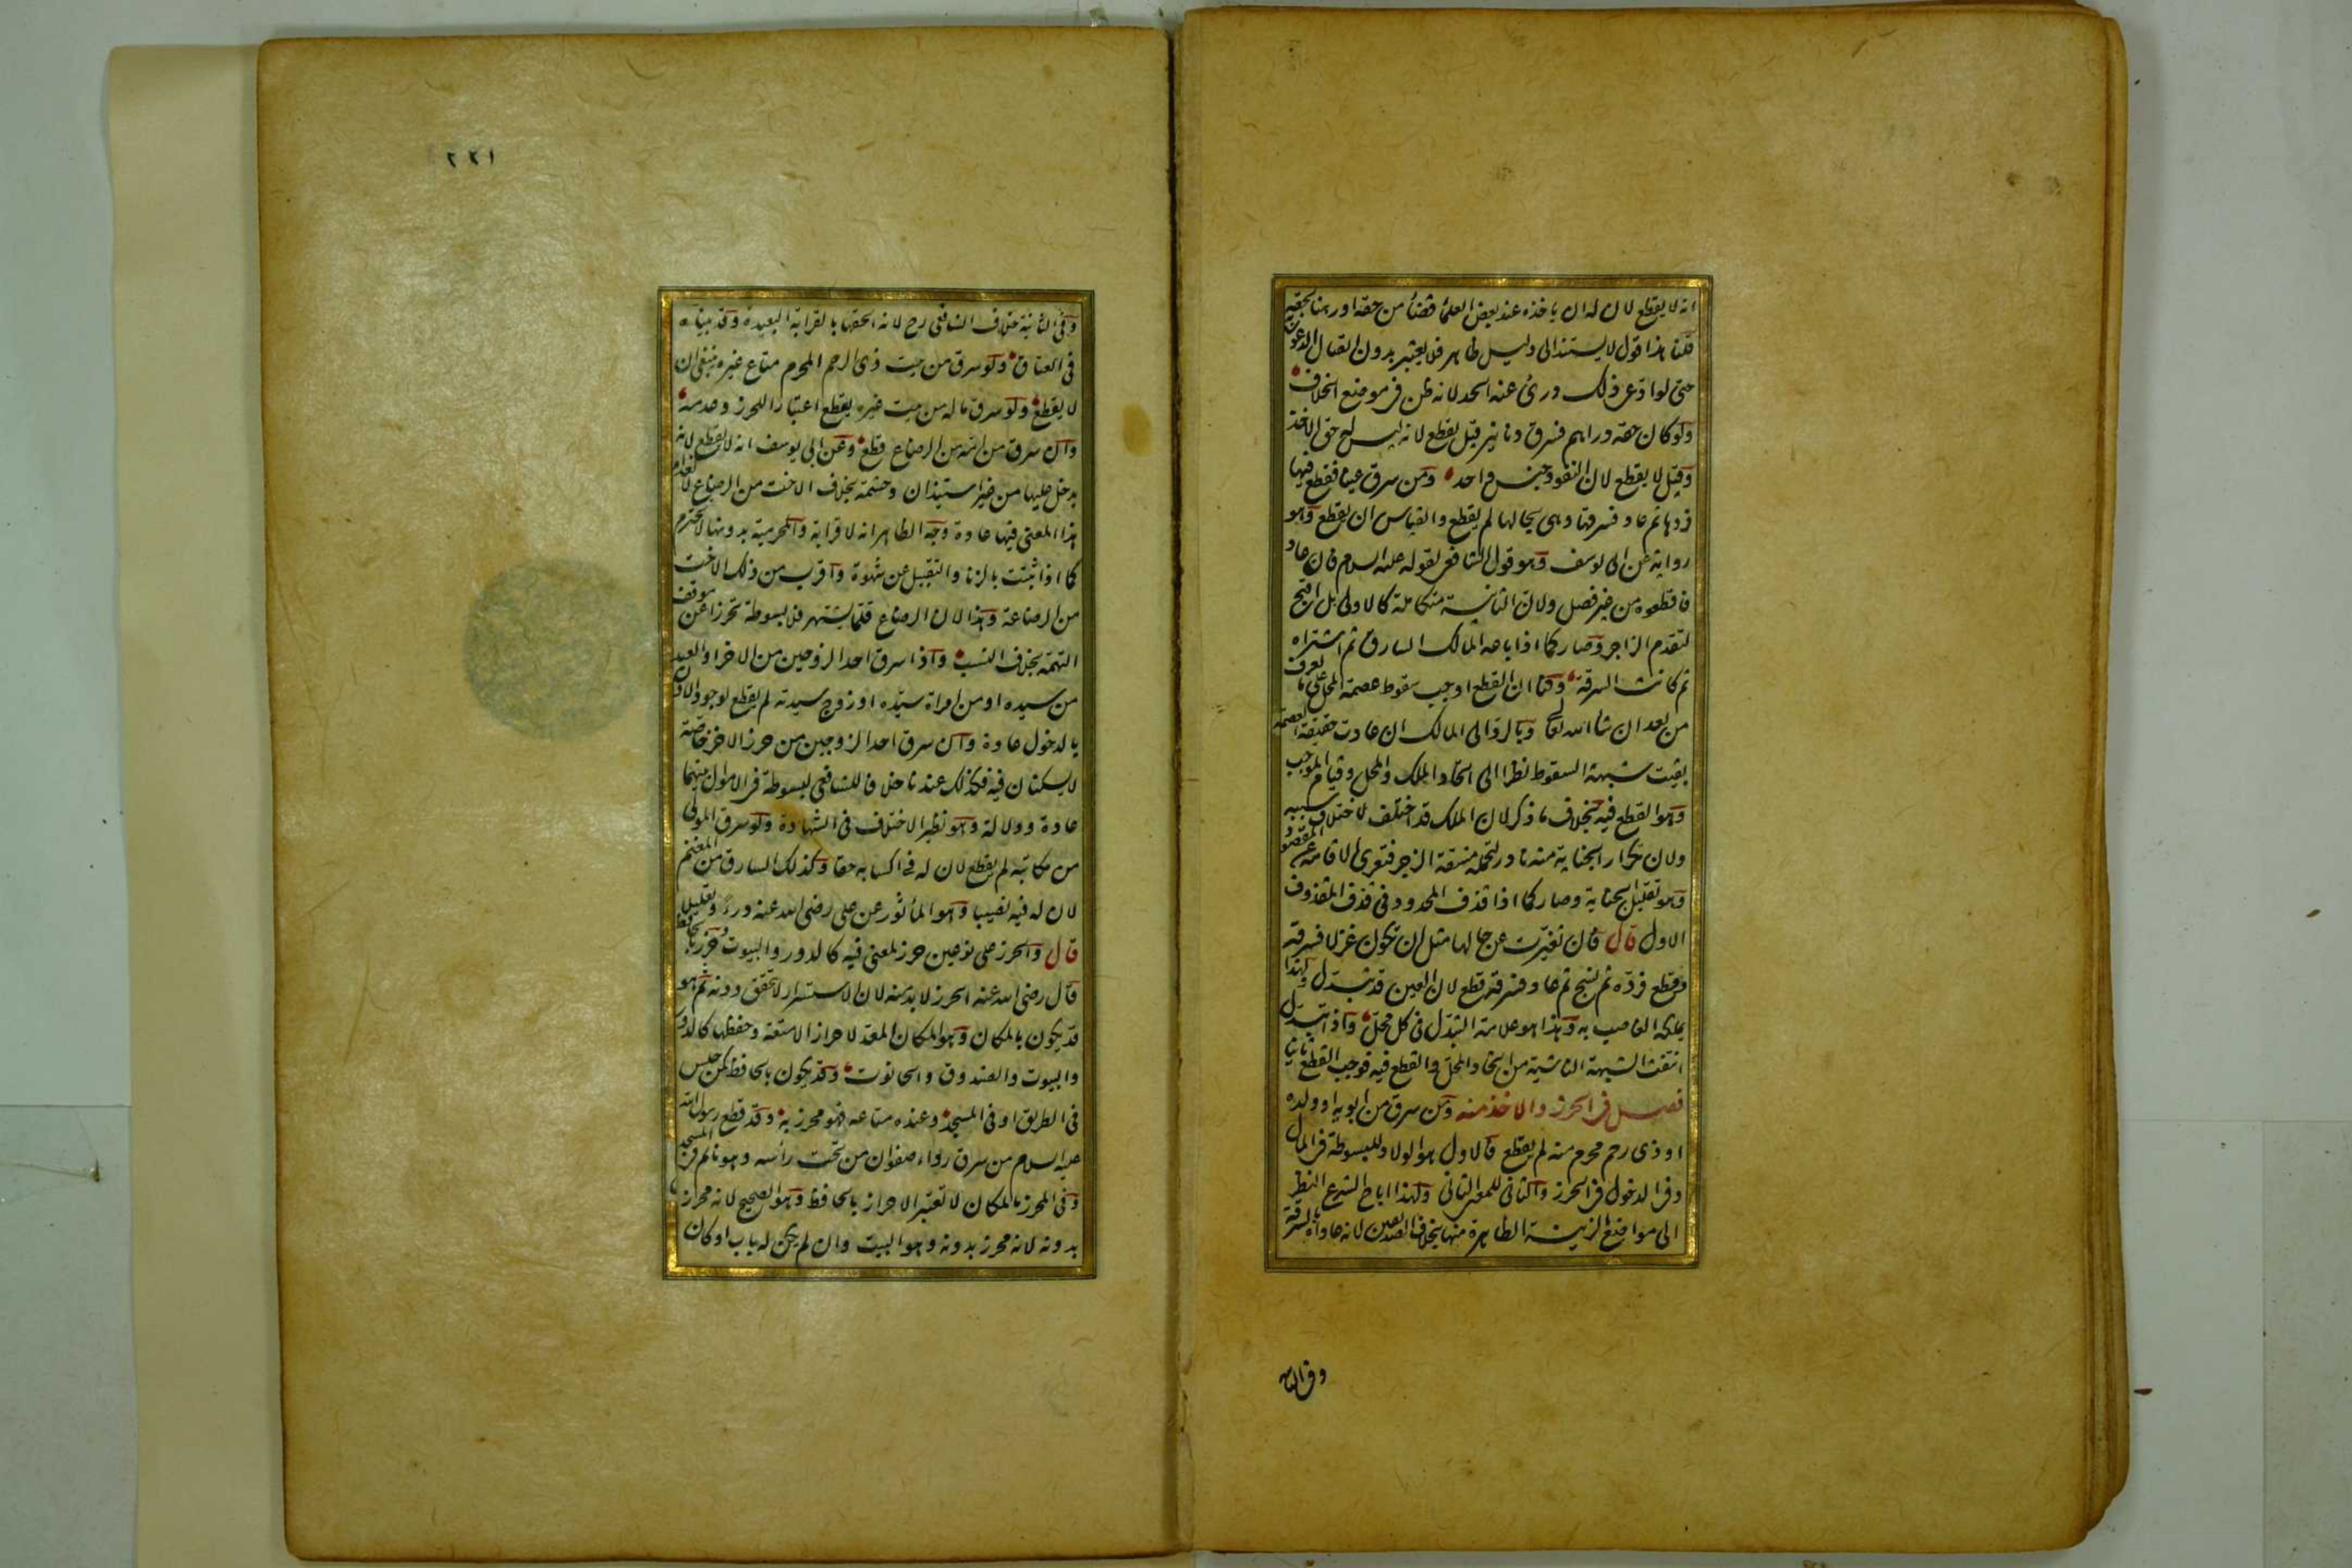 انه لا يقطع لان له ان ياخذه عند بعض العلماء قضاء من حقه او رهنا بحقه
قلنا هذا قول لا يستند الى دليل ظاهر فلا يعتبر بدون اتصال الدعوى
حتى لو ادعى ذلك درئ عنه الحد لانه ظن في موضع الخلاف
ولو كان حقه دراهم فسرق دنانير قيل يقطع لانه ليس له حق الاخذ
وقيل لا يقطع لان النقود جنس واحد ومن سرق عينا فقطع فيها
فردها ثم عاد فسرقها وهى بحالها لم يقطع والقياس ان يقطع وهو
رواية عن ابى يوسف وهو قول الشافعى لقوله عليه السلام فان عاد
فاقطعوه من غير فصل ولان الثانية متكاملة كالاولى بل اقبح
لتقدم الزاجر وصار كما اذا باعه المالك السارق ثم اشتراه
ثم كانت السرقة ولنا ان القطع اوجب سقوط عصمة المحل على ما يعرف
من بعد ان شا الله تعالى وبالرد الى المالك ان عادت حقيقة العصمة
بقيت شبهة السقوط نظرا الى اتحاد الملك والمحل وقيام الموجب
وهو القطع فيه بخلاف ما ذكر لان الملك قد اختلف لاختلاف سببه
ولان تكرار الجناية منه نادر لتحمله مشقة الزاجر فتعرى الاقامة عن المقصود
وهو تقليل الجناية وصار كما اذا قذف المحدود فى قذف المقذوف
الاول قال فان تغيرت عن حالها مثل ان تكون غزلا فسرقه
فقطع فرده ثم نسج ثم عاد فسرقه قطع لان العين قد تبدل ولهذا
يملكه الغاصب به وهذا هو علامة التبدل فى كل محل واذا تبدل
انتفت الشبهة الناشية من اتحاد المحل والقطع فيه فوجب القطع ثانيا
فصل فى الحرز والاخذ منه ومن سرق من ابويه او ولده
او ذى رحم محرم منه لم يقطع فالاول هو الولاد للبسوطة فى المال
وفى الدخول فى الحرز والثانى للمعنى الثانى ولهذا اباح الشرع النظر
الى مواضع الزينة الظاهرة منها بخلاف الصديقين لانه عاداه بالسرقة
وفى الثانية
٢٢١
وفى الثانية خلاف الشافعى رح لانه الحقها بالقرابة البعيدة وقد بيناه
فى العتاق ولو سرق من بيت ذى الرحم المحرم متاع غيره ينبغى ان
لا يقطع ولو سرق ماله من بيت غيره يقطع اعتبارا للحرز وعدمه
وان سرق من امه من الرضاع قطع وعن ابى يوسف انه لا يقطع لانه
يدخل عليها من غير استيذان وحشمة بخلاف الاخت من الرضاع لانعدام
هذا المعنى فيها عادة وجه الظاهر انه لا قرابة والمحرمية بدونها لا تحترم
كما اذا ثبتت بالزنا والتقبيل عن شهوة واقرب من ذلك الاخت
من الرضاعة وهذا لان الرضاع قلما يشتهر فلا بسوطة تحرزا عن موقف
التهمة بخلاف النسب واذا سرق احد الزوجين من الاخر او العبد
من سيده او من امراة سيده او زوج سيدته لم يقطع لوجود الاذن
بالدخول عادة وان سرق احد الزوجين من حرز الاخر خاصة
لا يسكنان فيه فكذلك عندنا خلافا للشافعى لبسوطة فى الاموال بينهما
عادة ودلالة وهو نظير الاختلاف فى الشهادة ولو سرق المولى
من مكاتبه لم يقطع لان له فى اكسابه حقا وكذلك السارق من المغنم
لان له فيه نصيبا وهو المأثور عن على رضى الله عنه درءً وتعليلا
قال والحرز على نوعين حرز لمعنى فيه كالدور والبيوت وحرز بالحافظ
قال رضى الله عنه الحرز لا بد منه لان الاستسرار لا يتحقق دونه ثم هو
قد يكون بالمكان وهو المكان المعد لاحراز الامتعة وحفظها كالدور
والبيوت والصندوق والحانوت وقد يكون بالحافظ كمن جلس
فى الطريق او فى المسجد وعنده متاعه فهو محرز به وقد قطع رسول الله
عليه السلام من سرق رداء صفوان من تحت رأسه وهو نائم فى المسجد
وفى المحرز بالمكان لا تعتبر الاحراز بالحافظ وهو الصحيح لانه محرز
بدونه لانه محرز بدونه وهو البيت وان لم يكن له باب او كان